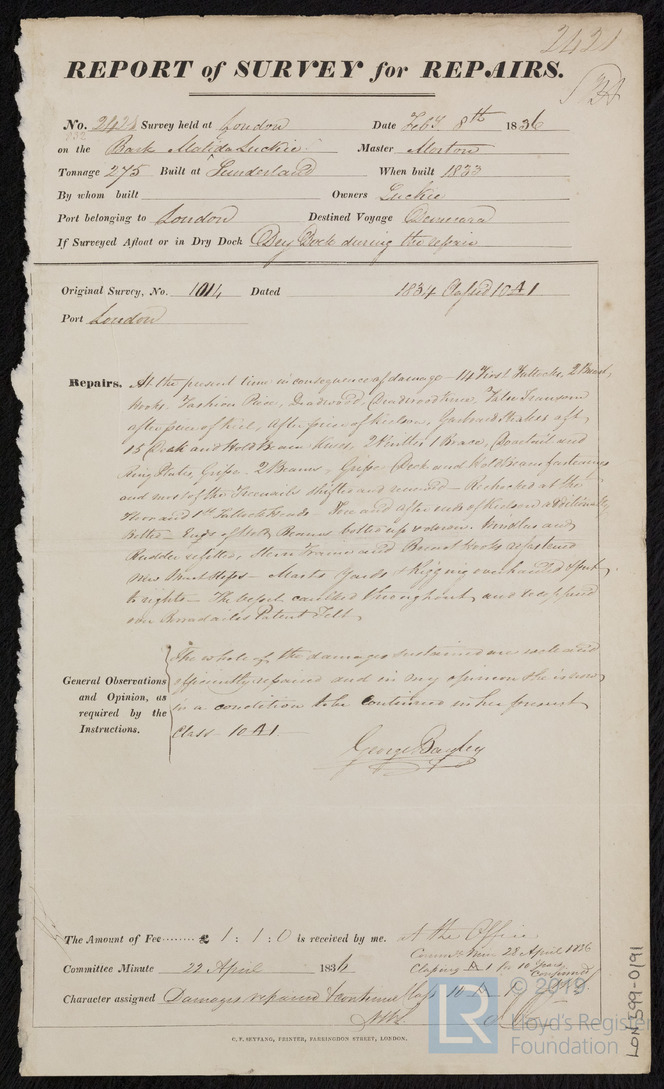 2421
REPORT of SURVEY for REPAIRS.
No. 2421 Survey held at London Date Feby 8th 1836
on the Bark Matilda Luckie Master Morton
Tonnage 275 Built at Sunderland When built 1833
By whom built Owners Luckie
Port belonging to London Destined Voyage Demerara
If Surveyed Afloat or in Dry Dock Dry Dock during the repair
Original Survey, No. 1014 Dated 1834 Classed 10 A 1
Port London
Repairs. At the present time in consequence of damage - 14 First Futtocks, 2 Breast
hooks. Fashion Piece, Deadwood, Deadwood Knee, Filler Transom
after piece of Keel, after piece of Keelson, Garboard Strakes aft,
15 Deck and Hold Beam Knees, 2 Pintles 1 Brace, Dovetail and
Ring Plates, Gripe - 2 Beams, Deck and Hold Beam fastenings
and most of the Treenails shifted and renewed - Rechocked at the
Floor and 1st Futtock Heads - Fore and after ends of Keelson additionally
bolted - Ends of Hold Beams bolted up & down. Windlass and
Rudder refitted, Stern Frame and Breast hooks refastened
New Mast Steps - Masts Yards & Rigging overhauled & put
to rights - The vessel caulked throughout, and recoppered
on Borradailes Patent Felt
General Observations and Opinion, as required by the Instructions.
The whole of the damages sustained are well and
efficiently repaired and in my opinion she is now
in a condition to be continued in her present
Class - 10 A 1 -
George Bayley
The Amount of Fee £ 1 : 1 : 0 is received by me. at the Office
Commee Min 28 April 1836
Classing A 1 for 10 Years
Confirmed
Committee Minute 22 April 1836
Character assigned Damages repaired & continue Class 10 A 1
© 2019
LR
Lloyd's Register
Foundation
C. F. SEYFANG, PRINTER, FARRINGDON STREET, LONDON.
LON 599-0191